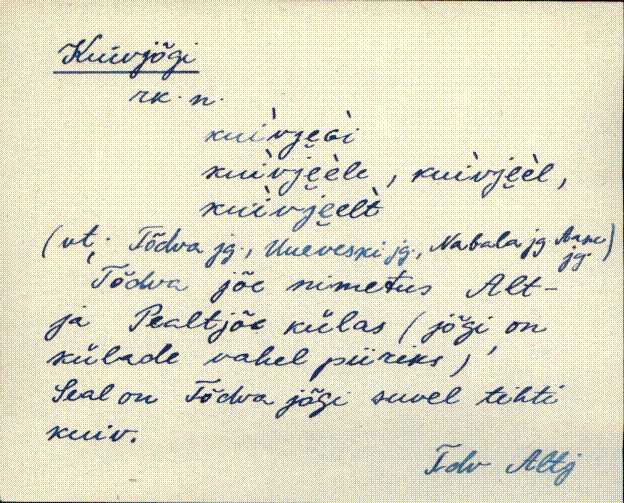 Kuivjõgi
rk. n.
kuìvje̮ɢì
kuìvje̮èle, kuìvje̮èl,
kuìvje̮elt̀
(vt. Tõdva jg., Uueveski jg., Nabala jg
jg.)
Tõdva jõe nimetus Alt-
ja Pealtjõe külas (jõgi on
külade vahel piiriks)
Seal on Tõdva jõgi suvel tihti
kuiv.
Tdv Altj